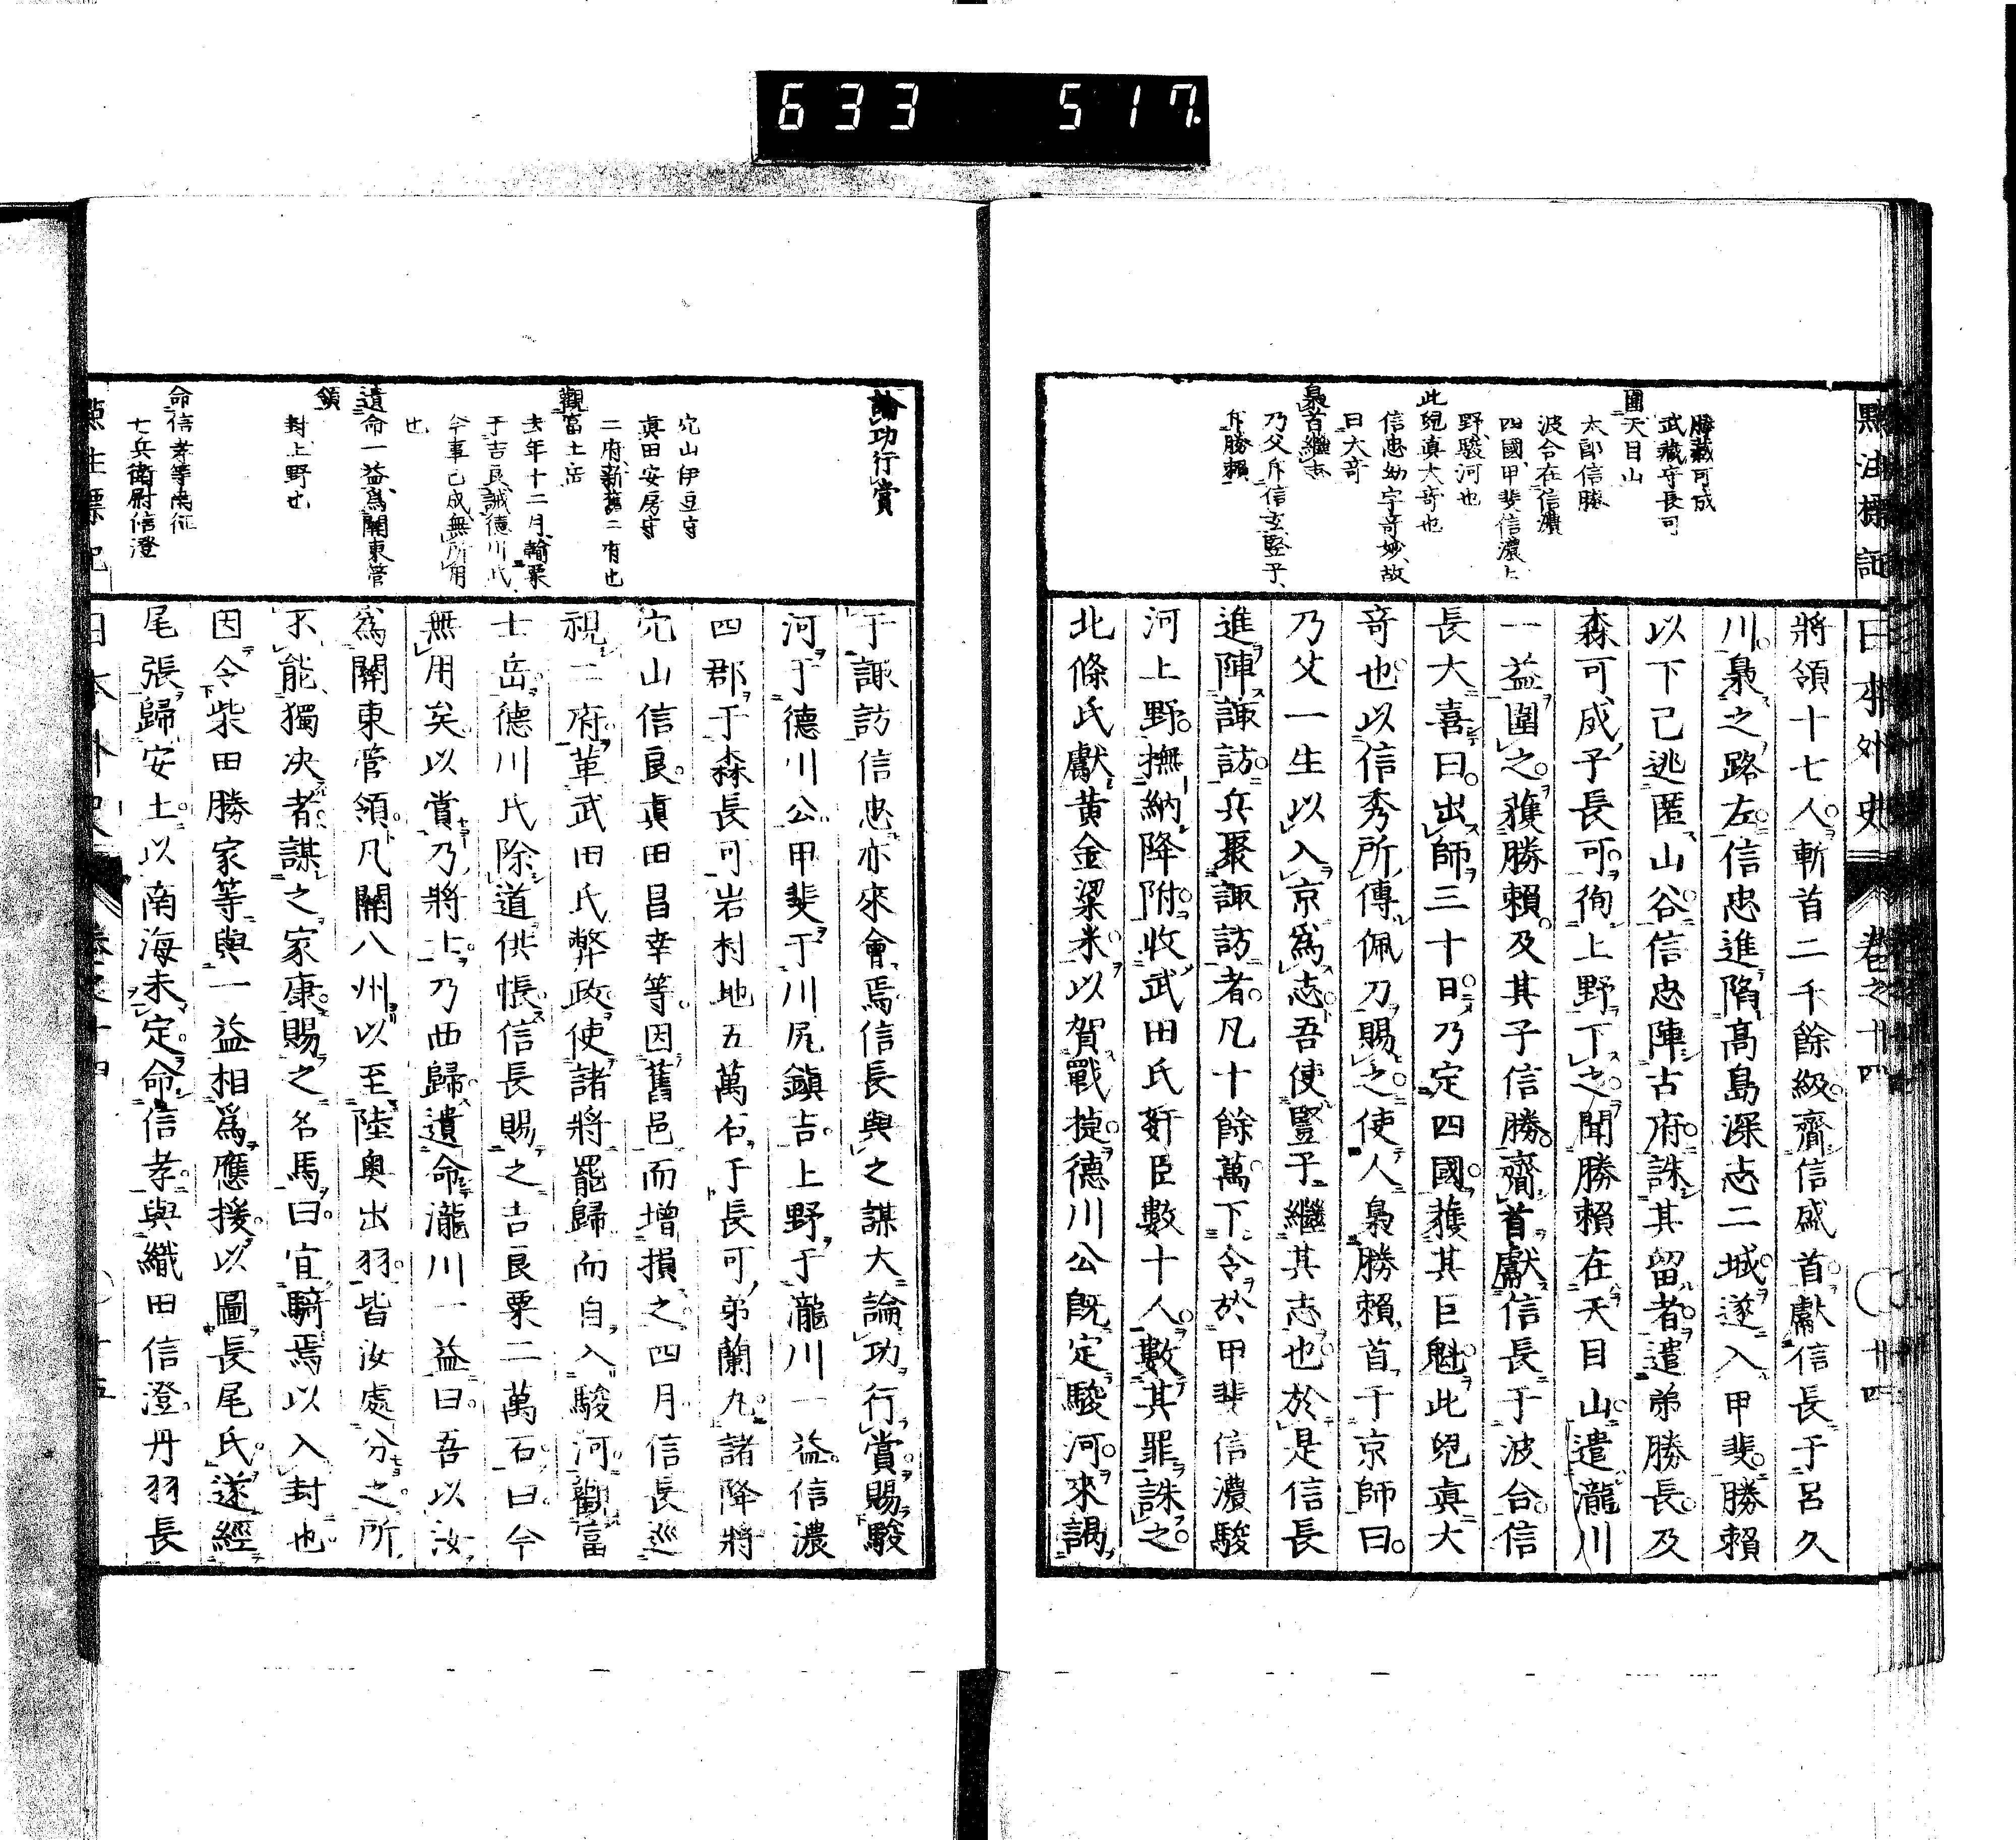 633 517
點註標記
日本外史
卷之十四
廿四
勝藏可成
武藏守長可
圍天目山
太郎信勝
波合在信濃
四國、甲斐信濃上
野駿河也
此兒眞大奇也
信忠幼字奇妙、故
曰大奇
梟首繼志
乃父斥信玄竪子、
斥勝賴
將領十七人。斬首二千餘級。齎信盛首。獻信長于呂久
川。梟之路左。信忠進陷高島深志二城。遂入甲斐。勝賴
以下己逃匿山谷。信忠陣古府。誅其留者。遣弟勝長。及
森可成子長可。徇上野下之。聞勝賴在天目山。遣瀧川
一益圍之。獲勝賴。及其子信勝。齎首獻信長于波合。信
長大喜曰。出師三十日。乃定四國。獲其巨魁。此兒眞大
奇也。以信秀所傳佩刀賜之。使人梟勝賴首于京師曰。
乃父一生以入京爲志。吾使豎子繼其志也。於是信長
進陣諏訪。兵聚諏訪者。凡十餘萬。下令於甲斐信濃駿
河上野。撫納降附。收武田氏奸臣數十人。數其罪誅之。
北條氏獻黃金粱米。以賀戰捷。德川公既定駿河。來謁
論功行賞
穴山伊豆守
眞田安房守
二府、新舊二府也
觀富士岳
去年十二月、輸粟
于吉良、誠德川氏、
今事已成、無所用
也
遺命一益、爲關東管
領
封上野也
命信孝等南征
七兵衛尉信澄
于諏訪。信忠亦來會焉。信長與之謀。大論功行賞。賜駿
河于德川公。甲斐于川尻鎭吉。上野于瀧川一益。信濃
四郡于森長可。岩村地五萬石于長可弟蘭丸。諸降將
穴山信良。眞田昌幸等。因舊邑而增損之。四月。信長巡
視二府。革武田氏弊政。使諸將罷歸。而自入駿河。觀富
士岳。德川氏除道供帳。信長賜之吉良粟二萬石。曰。今
無用矣。以賞乃將士。乃西歸。遺命瀧川一益曰。吾以汝
爲關東管領。凡關八州。以至陸奧出羽。皆汝處分之。所
不能獨決者。謀之家康。賜之名馬。曰。宜騎焉以入封也。
因令柴田勝家等。與一益相爲應援。以圖長尾氏。遂經
尾張歸安土。以南海未定。命信孝。與織田信澄。丹羽長